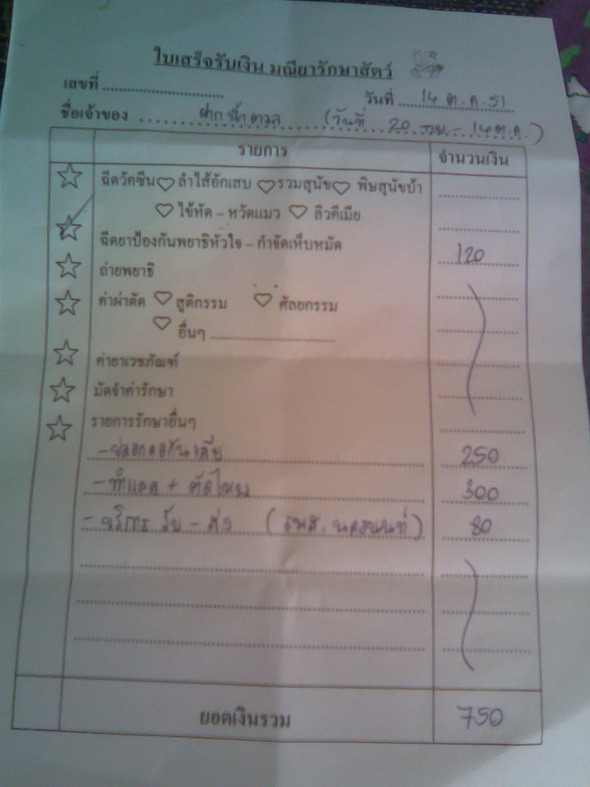 ใบเสร็จรับเงิน มณียารักษาสัตว์
เลขที่ ............................ วันที่ .... 14 ต.ค. 51
ชื่อเจ้าของ ........ ฝากน้ำตาล ........ (วันที่ 20 กย. - 14 ต.ค.)
รายการ จำนวนเงิน
ฉีดวัคซีน ลำไส้อักเสบ รวมสุนัข พิษสุนัขบ้า
ไข้หัด – หวัดแมว ลิวคีเมีย
ฉีดยาป้องกันพยาธิหัวใจ – กำจัดเห็บหมัด 120
ถ่ายพยาธิ
ค่าผ่าตัด สูติกรรม ศัลยกรรม
อื่นๆ ............................
ค่ายาเวชภัณฑ์
มัดจำค่ารักษา
รายการรักษาอื่นๆ
- ปลอกคอกันเลีย 250
- ทำแผล + ตัดไหม 300
- บริการ รับ - ส่ง ( รพส. นครนนท์ ) 80
ยอดเงินรวม 750